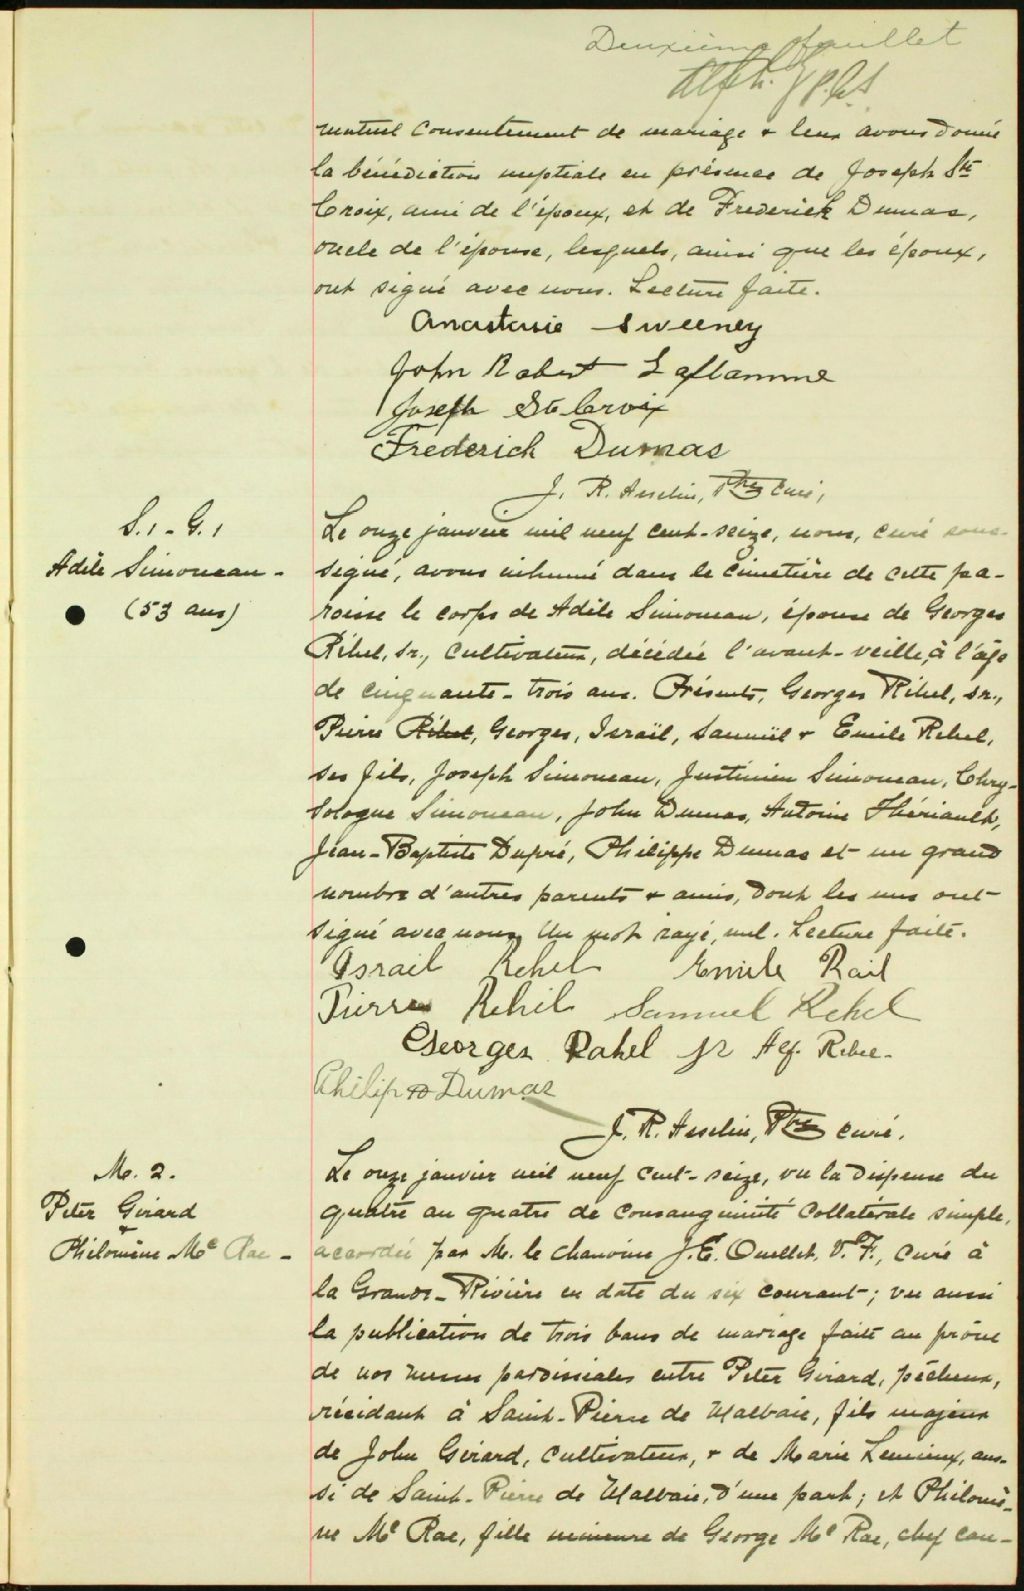 Deuxième feuillet
mutuel consentement de mariage & leur avons donné
la bénédiction nuptiale en présence de Joseph Ste
Croix, ami de l'époux, et de Frederick Dumas,
oncle de l'épouse, lesquels, ainsi que les époux,
ont signé avec nous. Lecture faite.
Anastasie Sweeney
John Robert Laflamme
Joseph Ste Croix
Frederick Dumas
J. R. Asselin, Ptre Curé,
S. 1 - G. 1
Adèle Simoneau -
(53 ans)
Le onze janvier mil neuf cent-seize, nous, curé sous-
signé, avons inhumé dans le cimetière de cette pa-
roisse le corps de Adèle Simoneau, épouse de Georges
Réhel, sr., cultivateur, décédée l'avant-veille, à l'âge
de cinquante-trois ans. Présents, Georges Réhel, sr.,
Pierre Réhel, Georges, Israël, Samuël & Emile Rehel,
ses fils, Joseph Simoneau, Justinien Simoneau, Chry-
sologue Simoneau, John Dumas, Antoine Thériault,
Jean-Baptiste Dupré, Philippe Dumas et un grand
nombre d'autres parents & amis, dont les uns ont
signé avec nous. Un mot rayé, nul. Lecture faite.
Israil Rehel Emile Rail
Pierre Rehil Samuel Rehel
Georges Rahel jr Alf. Rebel.
Philip Dumas
J. R. Asselin, Ptre curé.
M. 2.
Peter Girard
&
Philomène Mc Rae -
Le onze janvier mil neuf cent-seize, vu la dispense du
quatre au quatre de consanguinité collatérale simple,
accordée par M. le chanoine J. E. Ouellet, V. F., curé à
la Grande-Rivière en date du six courant; vu aussi
la publication de trois bans de mariage faite au prône
de nos messes paroissiales entre Peter Girard, pêcheur,
résidant à Saint-Pierre de Malbaie, fils majeur
de John Girard, cultivateur, & de Marie Lemieux, aus-
si de Saint-Pierre de Malbaie, d'une part; et Philomè-
ne Mc Rae, fille mineure de George Mc Rae, chef can-